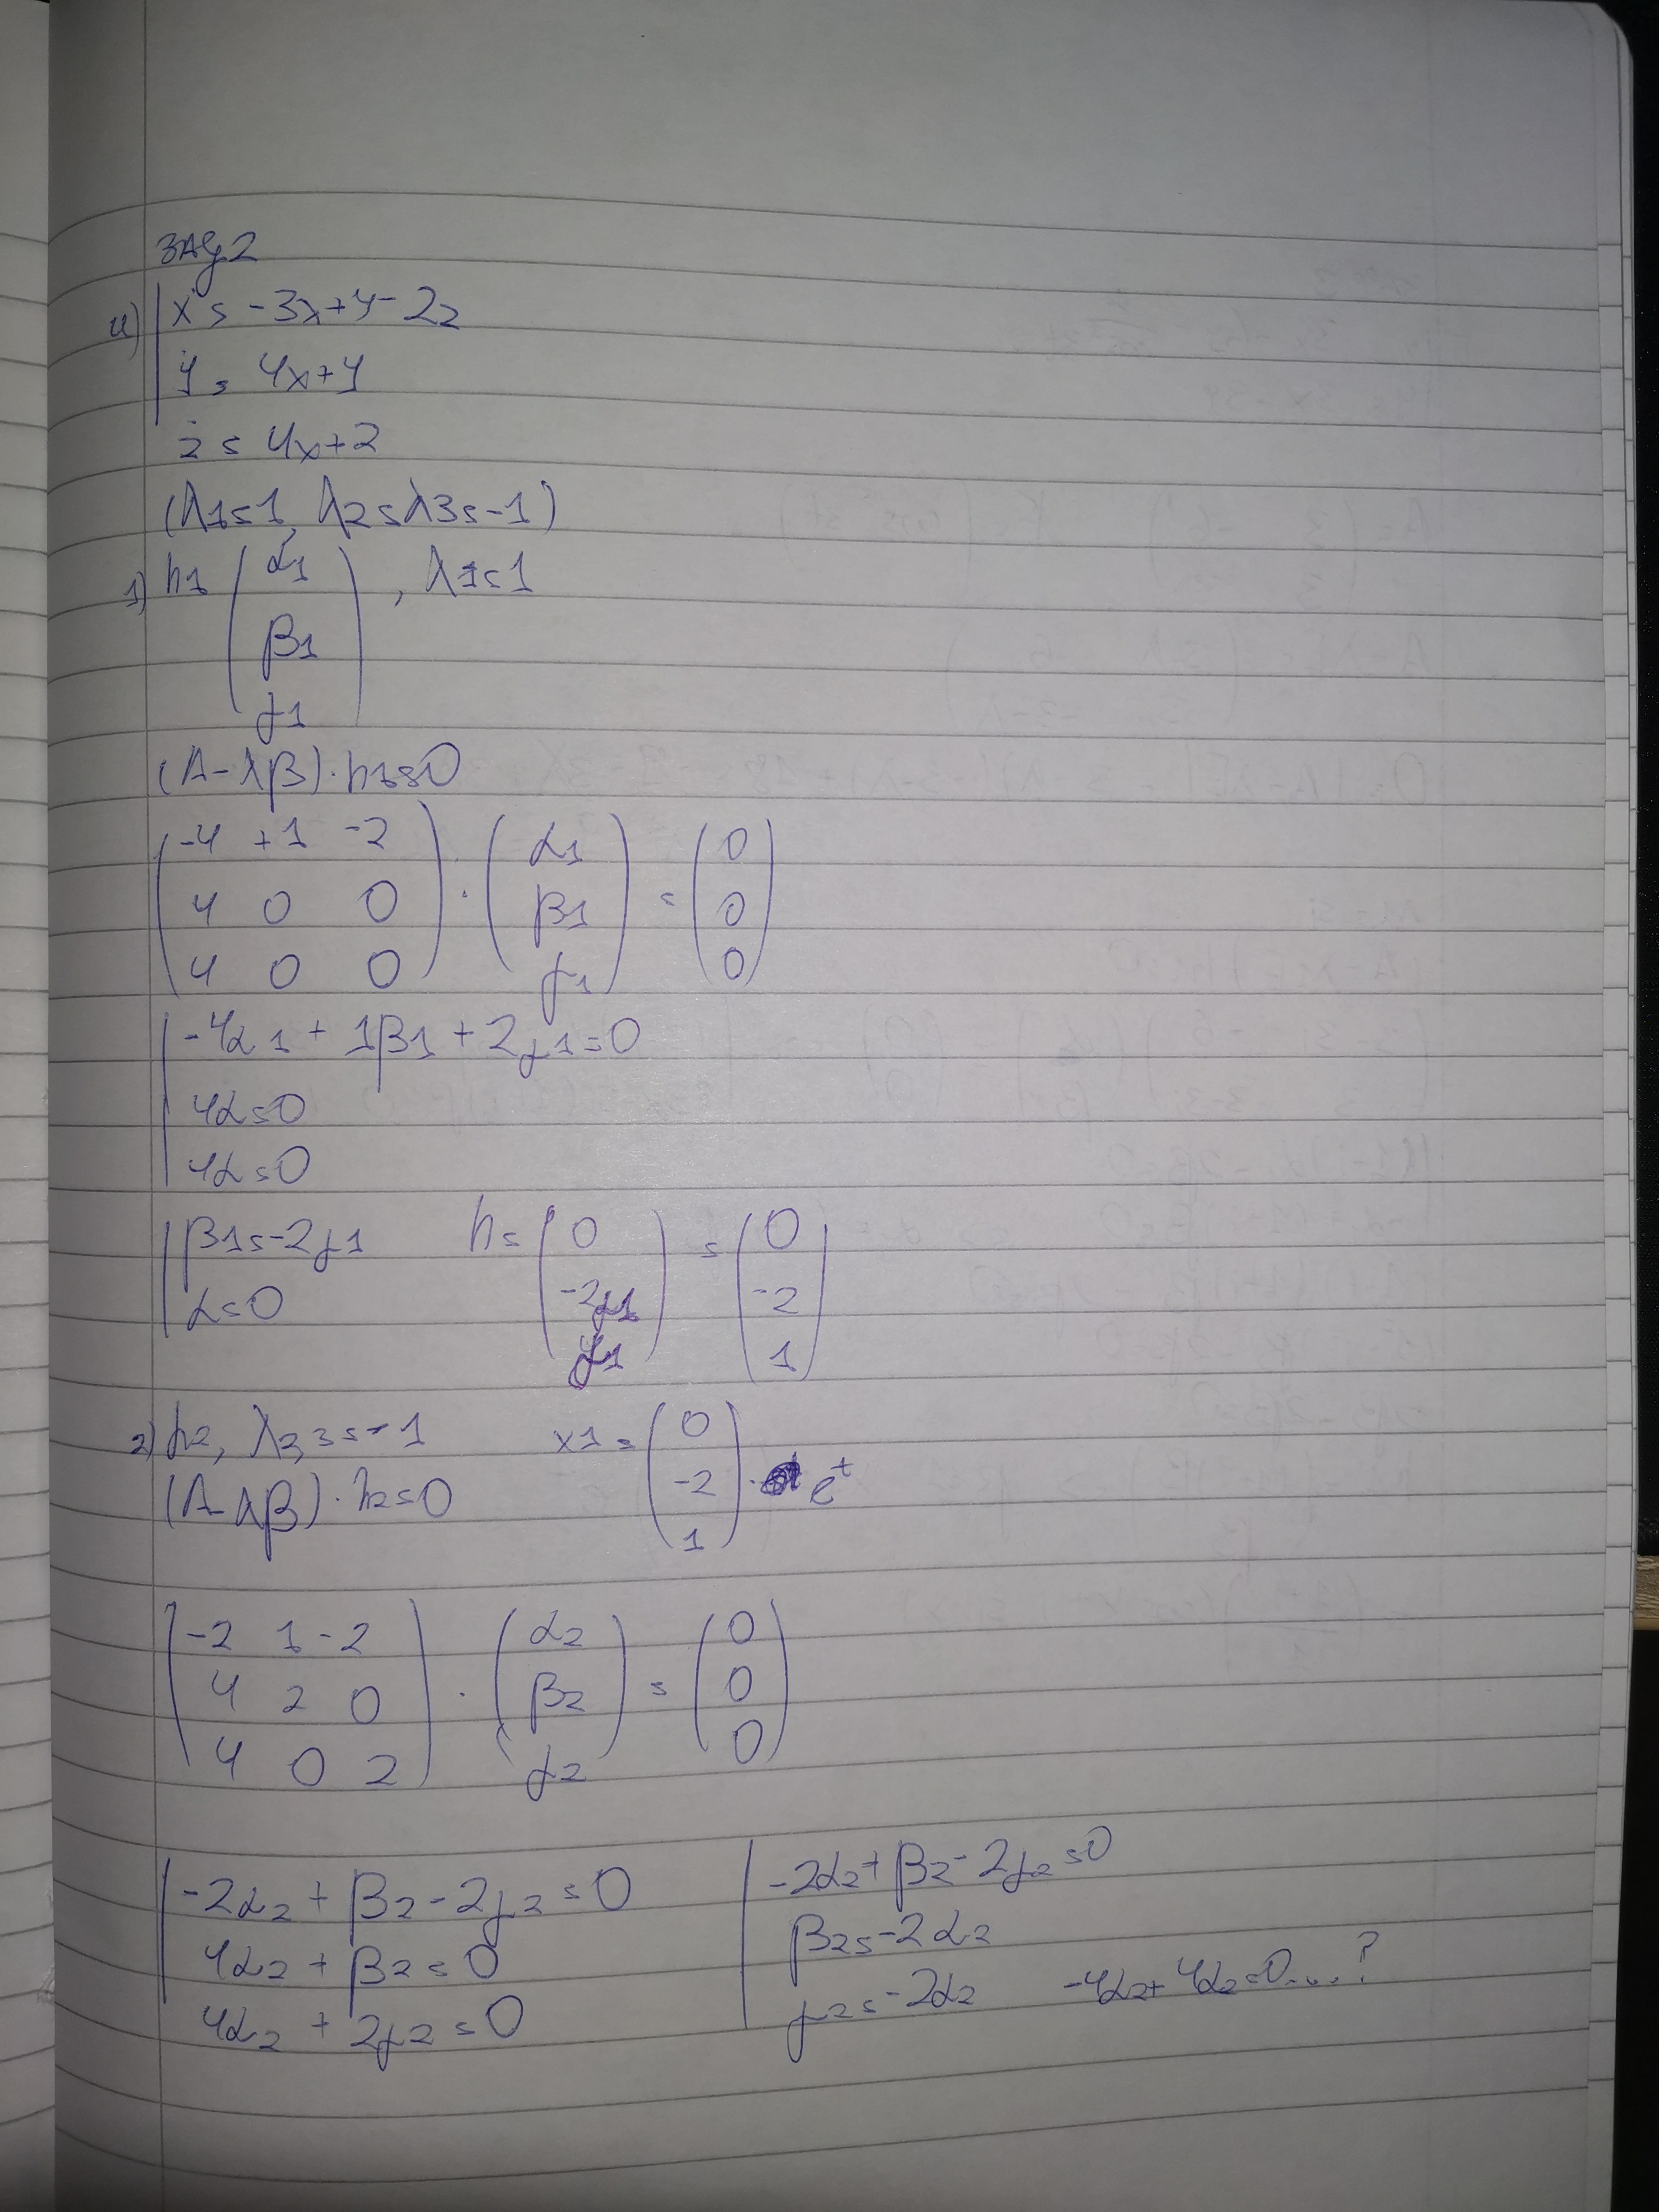 ЗАД 2
и) ẋ = -3x+y-2z
ẏ = 4x+y
ż = 4x+z
(λ1=1, λ2=λ3=-1)
1) h1 (α1 β1 γ1), λ1=1
(A-λβ).h1=0
(-4 +1 -2
4 0 0
4 0 0) . (α1 β1 γ1) = (0 0 0)
-4α1 + 1β1 + 2γ1=0
4α=0
4α=0
β1=-2γ1
α=0
h= (0 -2γ1 γ1) = (0 -2 1)
2) h2, λ2,3=-1
x1= (0 -2 1) . e^t
(A-λβ).h2=0
(-2 1 -2
4 2 0
4 0 2) . (α2 β2 γ2) = (0 0 0)
-2α2 + β2 - 2γ2=0
4α2 + β2=0
4α2 + 2γ2=0
-2α2+β2-2γ2=0
β2=-2α2
γ2=-2α2 -4α2+4α2=0....?